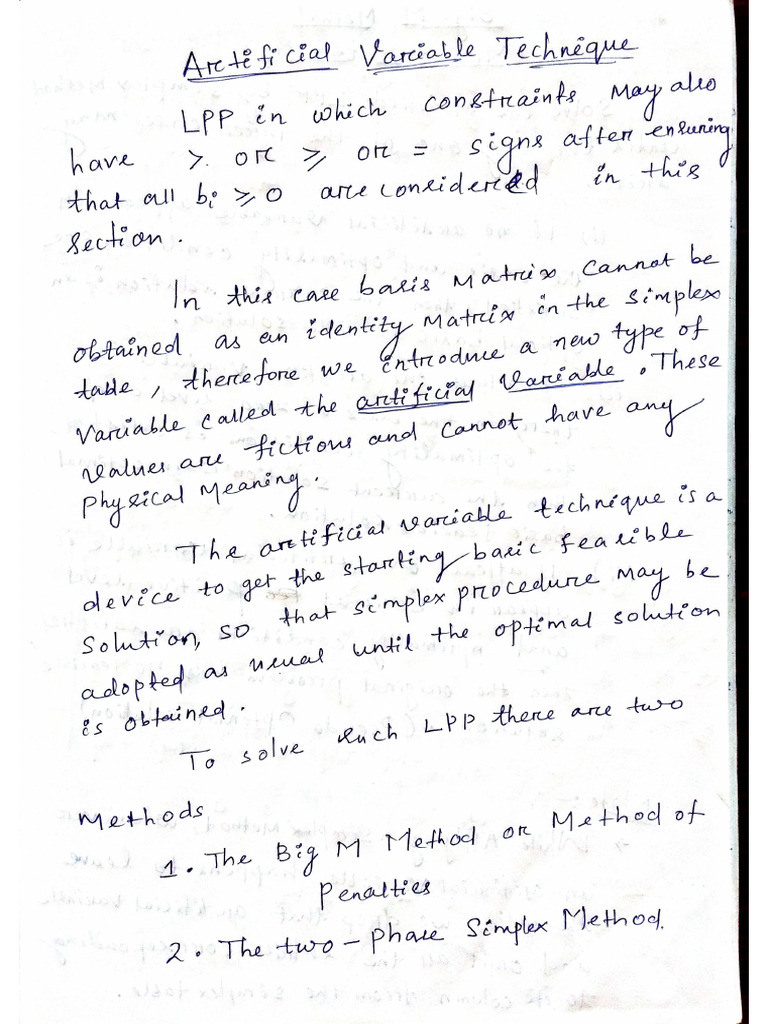 Artificial Variable Technique
LPP in which constraints may also
have > or ≥ or = signs after ensuring
that all bi ≥ 0 are considered in this
section.
In this case basis Matrix cannot be
obtained as an identity Matrix in the simplex
table, therefore we introduce a new type of
Variable called the artificial Variable. These
values are fictions and cannot have any
Physical Meaning.
The artificial variable technique is a
device to get the starting basic feasible
Solution, so that simplex procedure may be
adopted as usual until the optimal solution
is obtained.
To solve such LPP there are two
Methods
1. The Big M Method or Method of
Penalties
2. The two-phase Simplex Method.